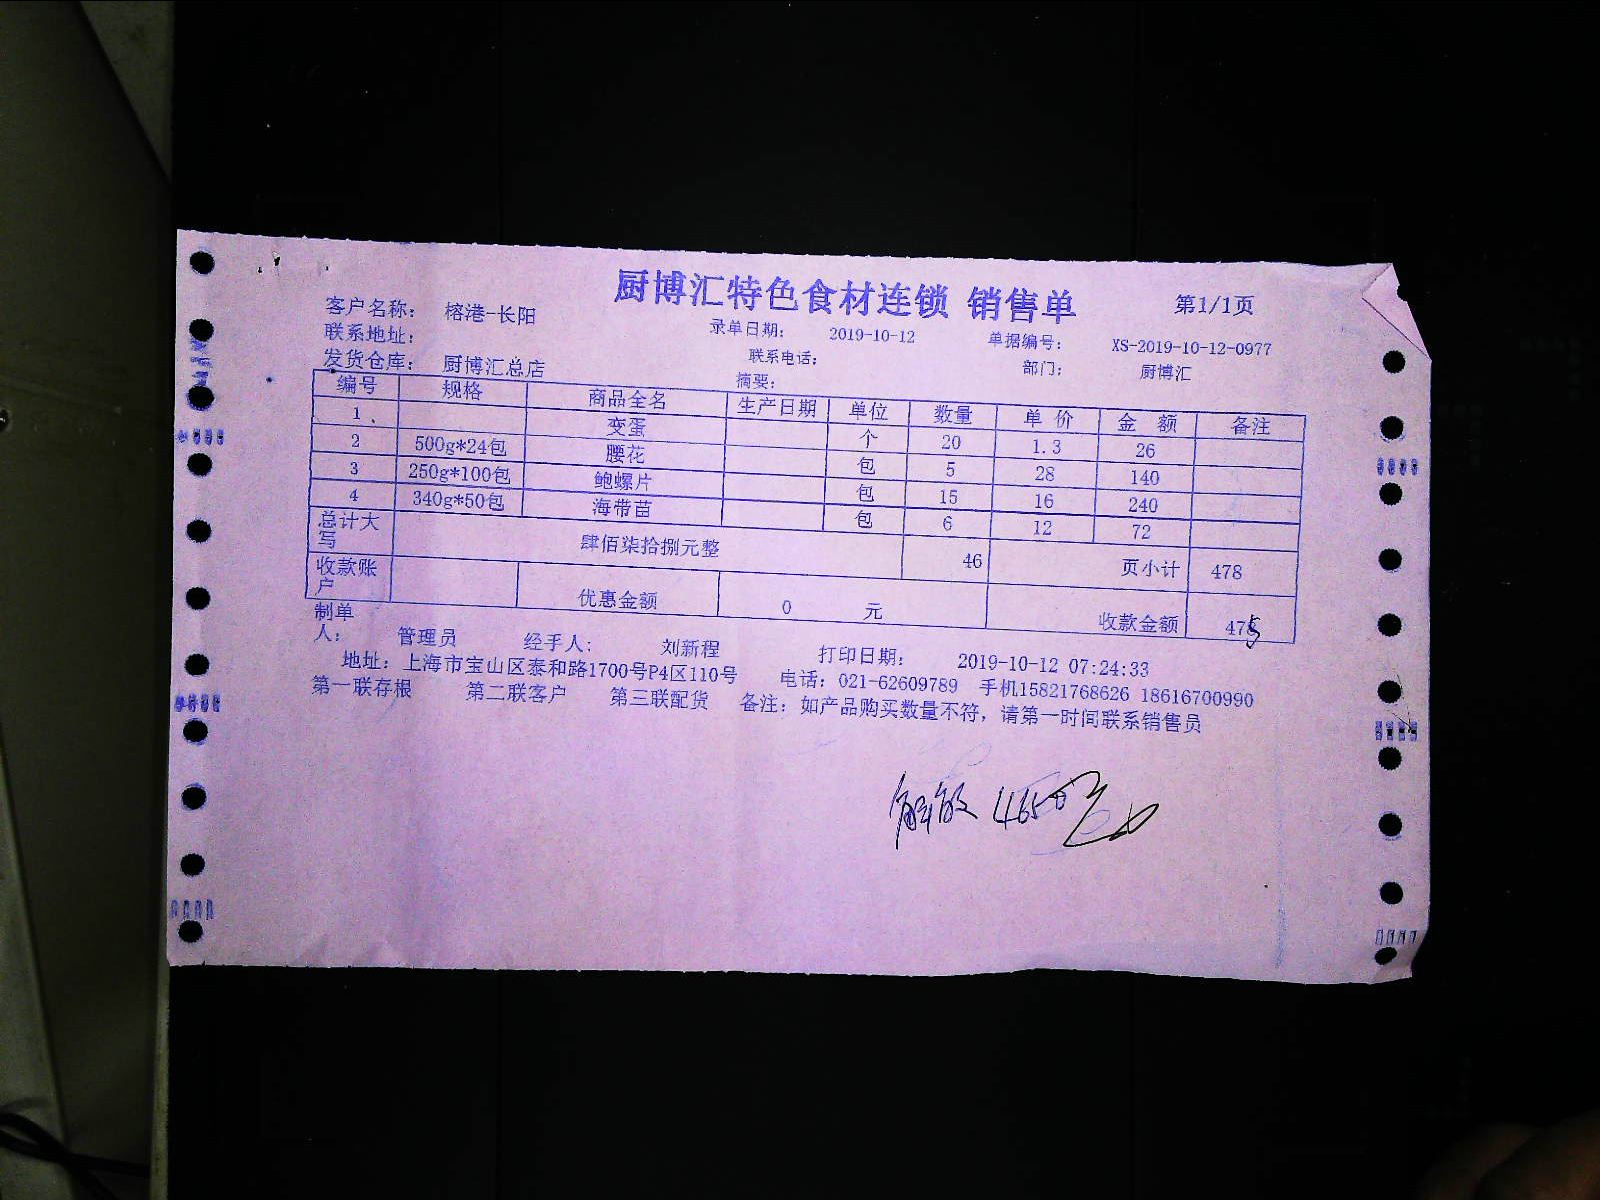 厨博汇特色食材连锁 销售单 第1/1页
客户名称： 榕港-长阳 录单日期： 2019-10-12 单据编号： XS-2019-10-12-0977
联系地址： 联系电话： 部门： 厨博汇
发货仓库： 厨博汇总店 摘要：
编号 规格 商品全名 生产日期 单位 数量 单 价 金 额 备注
1 变蛋 个 20 1.3 26
2 500g*24包 腰花 包 5 28 140
3 250g*100包 鲍螺片 包 15 16 240
4 340g*50包 海带苗 包 6 12 72
总计大写 肆佰柒拾捌元整 46 页小计 478
收款账户 优惠金额 0 元 收款金额 475
制单人： 管理员 经手人： 刘新程 打印日期： 2019-10-12 07:24:33
地址：上海市宝山区泰和路1700号P4区110号 电话：021-62609789 手机15821768626 18616700990
第一联存根 第二联客户 第三联配货 备注：如产品购买数量不符，请第一时间联系销售员